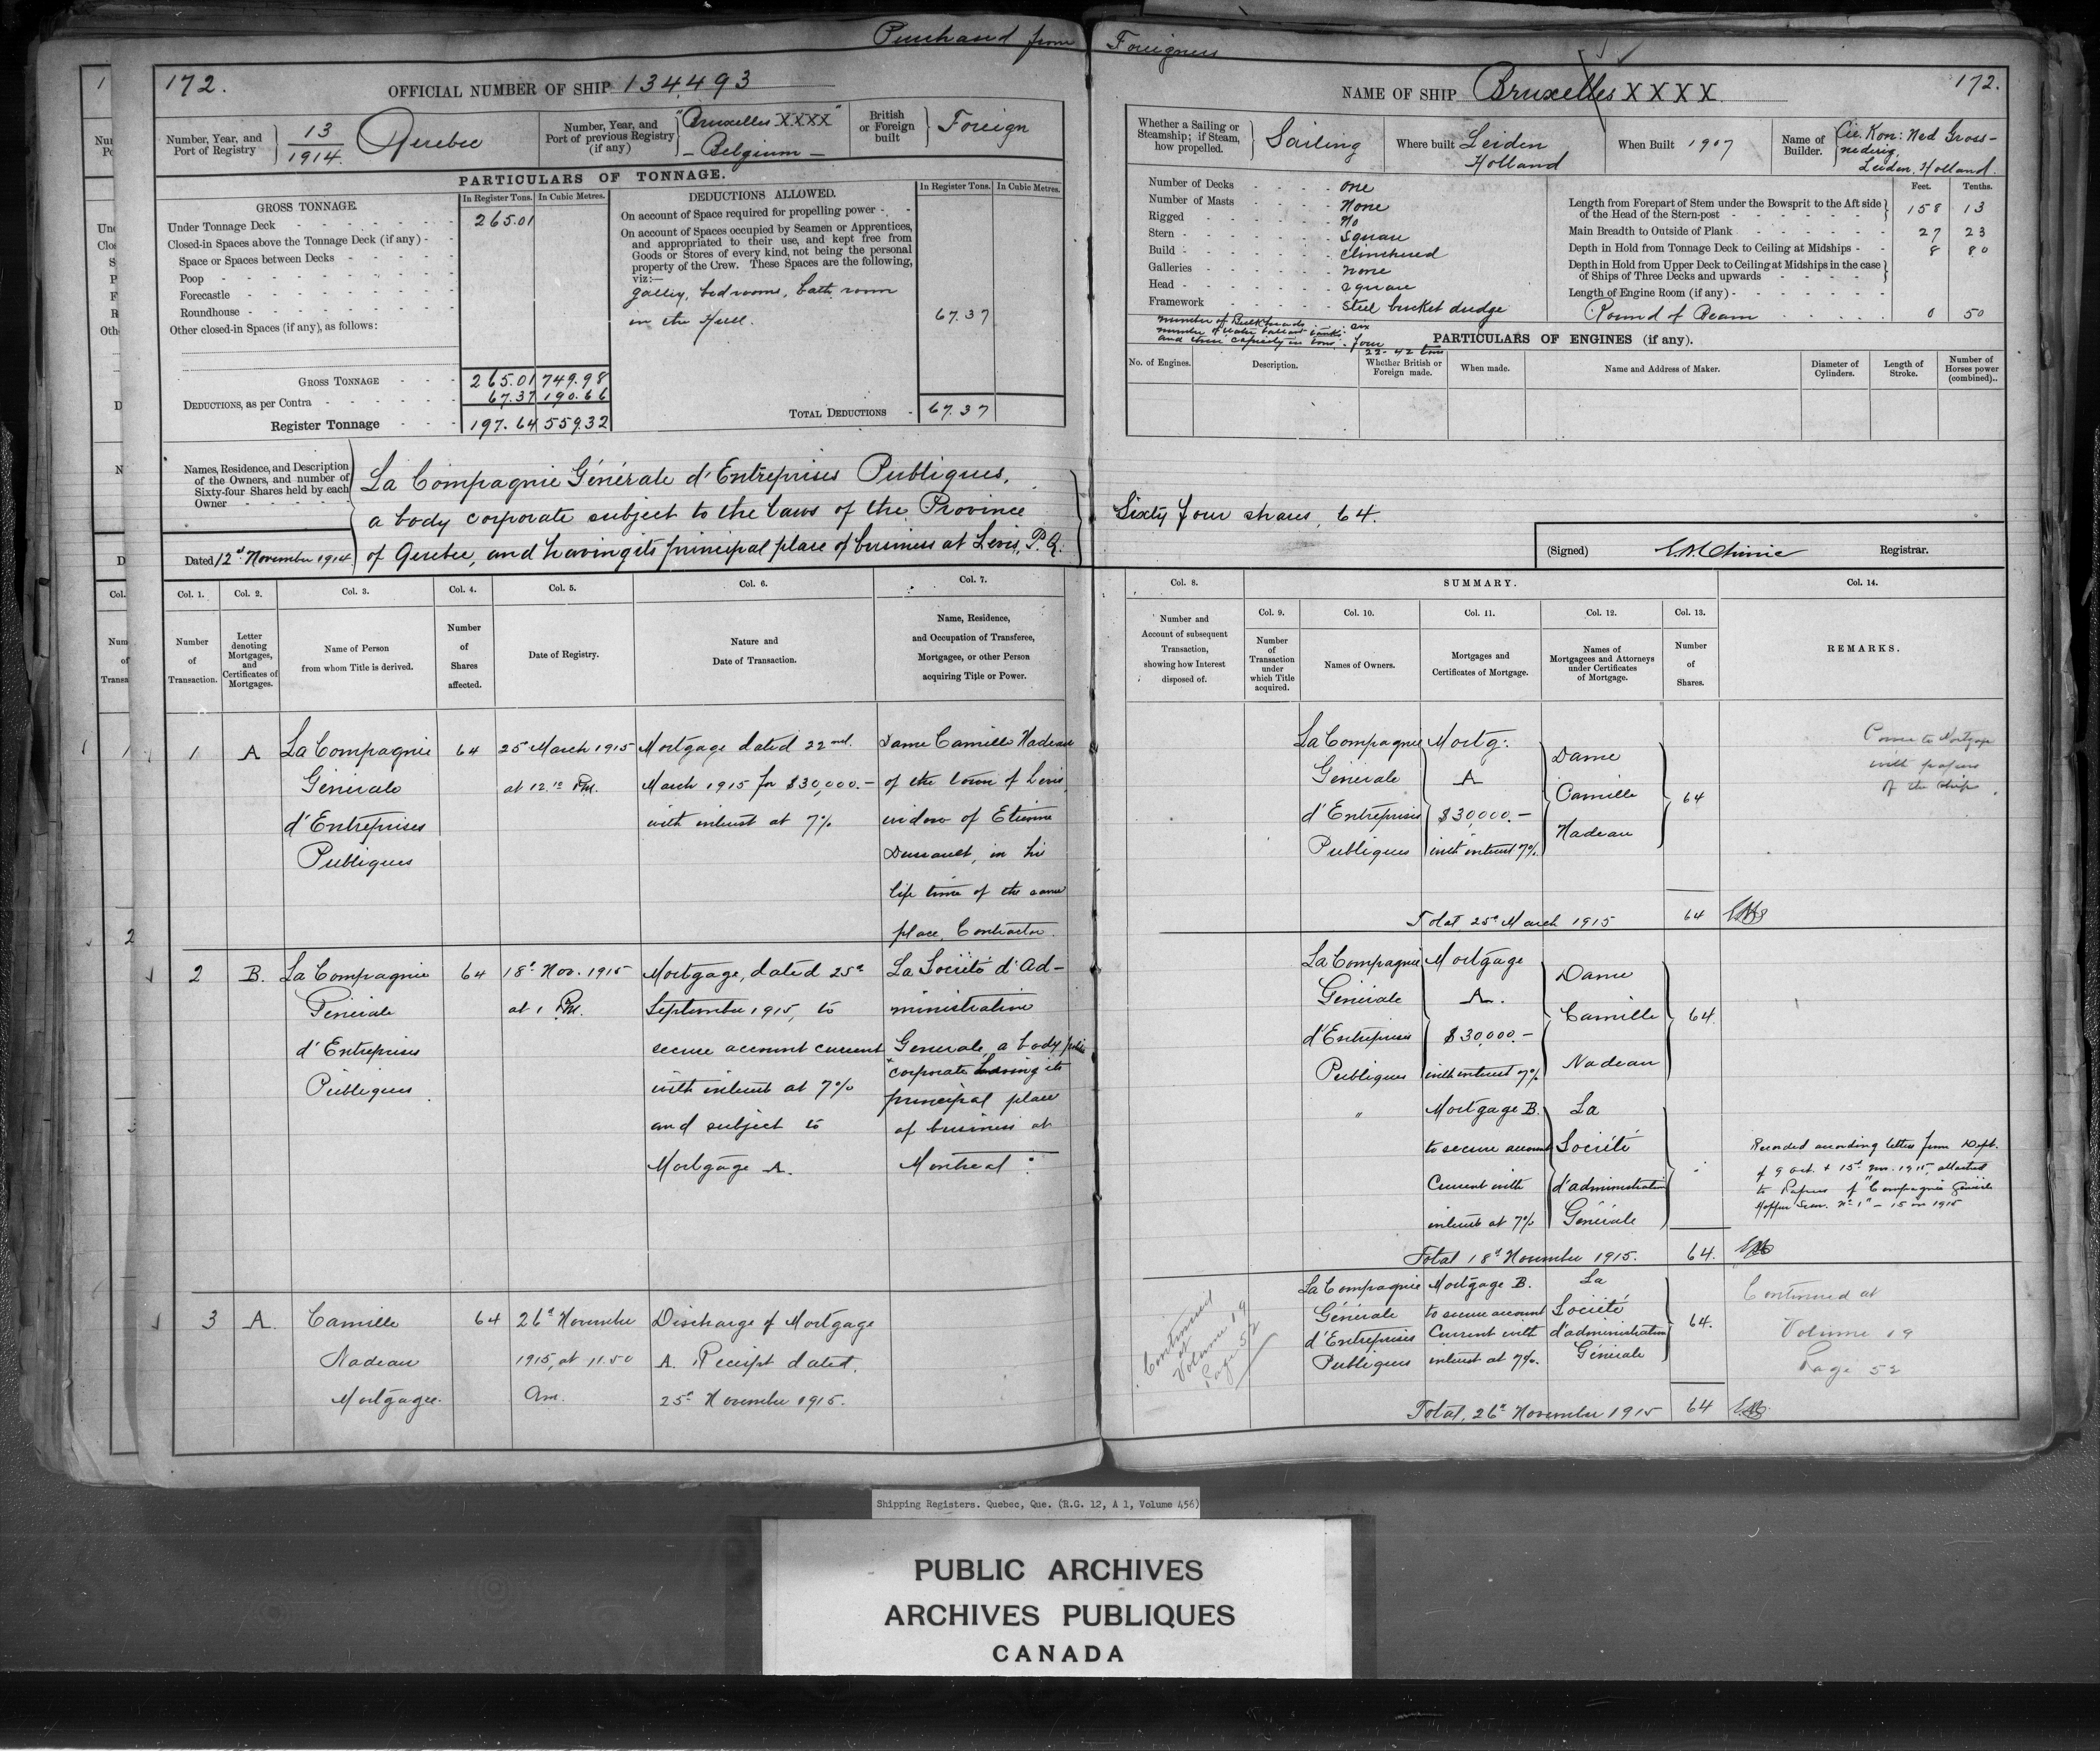 Purchased from Foreigners
172.
OFFICIAL NUMBER OF SHIP 134,493
Number, Year, and Port of Registry 13/1914. Quebec
Number, Year, and Port of previous Registry (if any) "Bruxelles XXXX" - Belgium -
British or Foreign built Foreign
PARTICULARS OF TONNAGE.
GROSS TONNAGE.
In Register Tons. In Cubic Metres.
Under Tonnage Deck 265.01
Closed-in Spaces above the Tonnage Deck (if any)
Space or Spaces between Decks
Poop
Forecastle
Roundhouse
Other closed-in Spaces (if any), as follows:
GROSS TONNAGE 265.01 749.98
DEDUCTIONS, as per Contra 67.37 190.66
Register Tonnage 197.64 559.32
DEDUCTIONS ALLOWED.
In Register Tons. In Cubic Metres.
On account of Space required for propelling power
On account of Spaces occupied by Seamen or Apprentices,
and appropriated to their use, and kept free from
Goods or Stores of every kind, not being the personal
property of the Crew. These Spaces are the following,
viz:—
galley, bedrooms, bath room
in the Hull. 67.37
TOTAL DEDUCTIONS 67.37
Names, Residence, and Description of the Owners, and number of Sixty-four Shares held by each Owner
La Compagnie Générale d'Entreprises Publiques,
a body corporate subject to the laws of the Province
of Quebec, and having its principal place of business at Levis, P.Q.
Dated 12th November 1914
Col. 1. Col. 2. Col. 3. Col. 4. Col. 5. Col. 6. Col. 7.
Number of Transaction.
Letter denoting Mortgages, and Certificates of Mortgages.
Name of Person from whom Title is derived.
Number of Shares affected.
Date of Registry.
Nature and Date of Transaction.
Name, Residence, and Occupation of Transferee, Mortgagee, or other Person acquiring Title or Power.
1 A La Compagnie Générale d'Entreprises Publiques
64
25 March 1915 at 12.10 P.M.
Mortgage dated 22nd.
March 1915 for $30,000.—
with interest at 7%
Dame Camille Nadeau
of the town of Levis,
widow of Etienne
Dussault, in his
life time of the same
place, Contractor.
2 B. La Compagnie Générale d'Entreprises Publiques
64
18th Nov. 1915 at 1 P.M.
Mortgage, dated 25th
September 1915, to
secure account current
with interest at 7%
and subject to
Mortgage A.
La Société d'Ad-
ministration
Generale, a body politic
& corporate having its
principal place
of business at
Montreal
3 A. Camille Nadeau Mortgagee.
64
26th November 1915, at 11.50 Am.
Discharge of Mortgage
A. Receipt dated.
25th November 1915.
172.
NAME OF SHIP Bruxelles XXXX
Whether a Sailing or Steamship; if Steam, how propelled. Sailing
Where built Leiden Holland
When Built 1907
Name of Builder. Cie. Kon: Ned Gross-
Leiden, Holland.
Number of Decks one
Number of Masts None
Rigged No
Stern Square
Build Clinchered
Galleries none
Head square
Framework Steel bucket dredge
number of Bulkheads six
number of water ballast tanks
and their capacity in tons. four
22 - 42 tons
Feet. Tenths.
Length from Forepart of Stem under the Bowsprit to the Aft side of the Head of the Stern-post 158 13
Main Breadth to Outside of Plank 27 23
Depth in Hold from Tonnage Deck to Ceiling at Midships 8 80
Depth in Hold from Upper Deck to Ceiling at Midships in the case of Ships of Three Decks and upwards
Length of Engine Room (if any)
Round of Beam 0 50
PARTICULARS OF ENGINES (if any).
No. of Engines.
Description.
Whether British or Foreign made.
When made.
Name and Address of Maker.
Diameter of Cylinders.
Length of Stroke.
Number of Horses power (combined)..
Sixty four shares, 64.
(Signed) Registrar.
Col. 8. SUMMARY. Col. 14.
Col. 9. Col. 10. Col. 11. Col. 12. Col. 13.
Number and Account of subsequent Transaction, showing how Interest disposed of.
Number of Transaction under which Title acquired.
Names of Owners.
Mortgages and Certificates of Mortgage.
Names of Mortgagees and Attorneys under Certificates of Mortgage.
Number of Shares.
REMARKS.
La Compagnie Générale d'Entreprises Publiques
Mortg: A $30,000.— with interest 7%
Dame Camille Nadeau
64
with papers
of the ship
Total 25th March 1915 64
La Compagnie Générale d'Entreprises Publiques
Mortgage A. $30,000.— with interest 7%
Dame Camille Nadeau
64.
"
Mortgage B.
to secure account
Current with
interest at 7%
La Société d'administration Générale
Recorded according letters from Dept.
of 9 Oct. & 15th Nov. 1915, attached
to Papers of "Compagnie Générale
No 1" - 15 in 1915
Total 18th November 1915. 64.
Continued at Volume 19 Page 52
La Compagnie Générale d'Entreprises Publiques
Mortgage B.
to secure account
Current with
interest at 7%.
La Société d'administration Générale
64.
Continued at
Volume 19
Page 52
Total, 26th November 1915 64
Shipping Registers. Quebec, Que. (R.G. 12, A 1, Volume 456)
PUBLIC ARCHIVES
ARCHIVES PUBLIQUES
CANADA